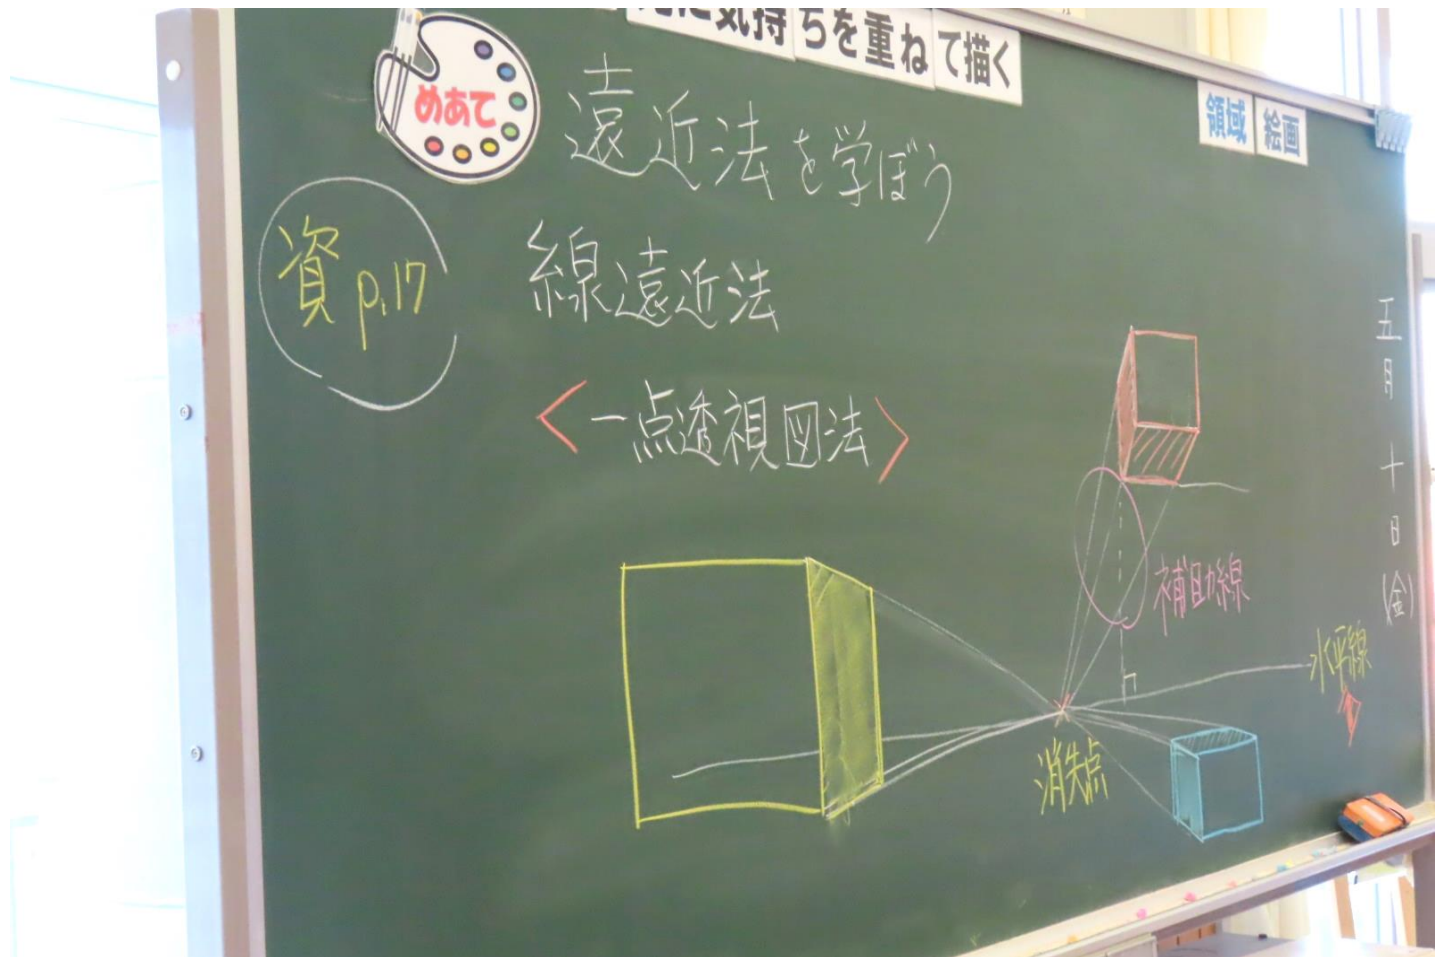 気持ちを重ねて描く
領域 絵画
めあて
遠近法を学ぼう
資 p.17
線遠近法
〈一点透視図法〉
五月十日(金)
補助線
水平線
消失点